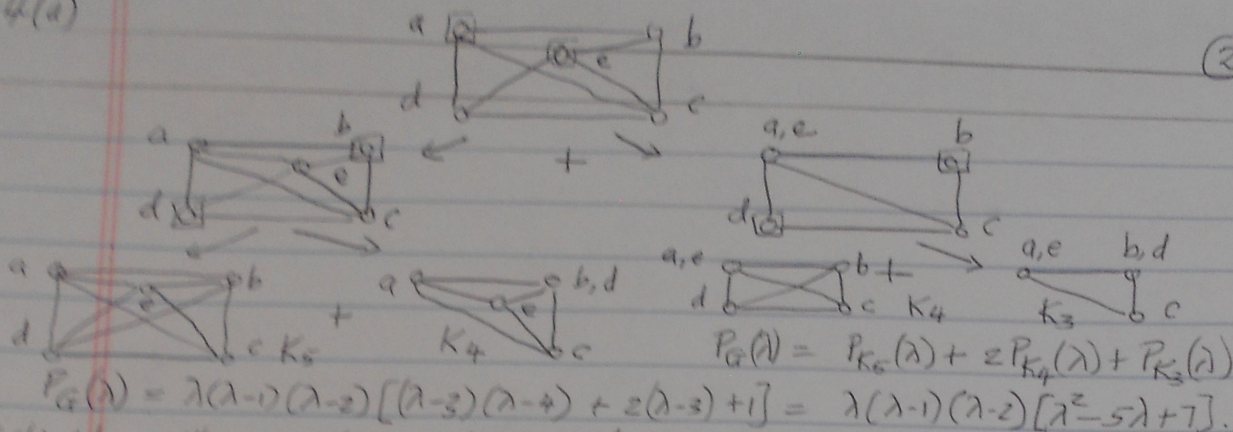 4(a)
a b
e
d c
2
a b
e
d c
+
a,e b
d c
a b
e
d c K5
+
a b,d
e
K4 c
a,e b
d c K4
+
a,e b,d
K3 c
P_G(λ) = P_K5(λ) + 2P_K4(λ) + P_K3(λ)
P_G(λ) = λ(λ-1)(λ-2)[(λ-3)(λ-4) + 2(λ-3)+1] = λ(λ-1)(λ-2)[λ²-5λ+7].